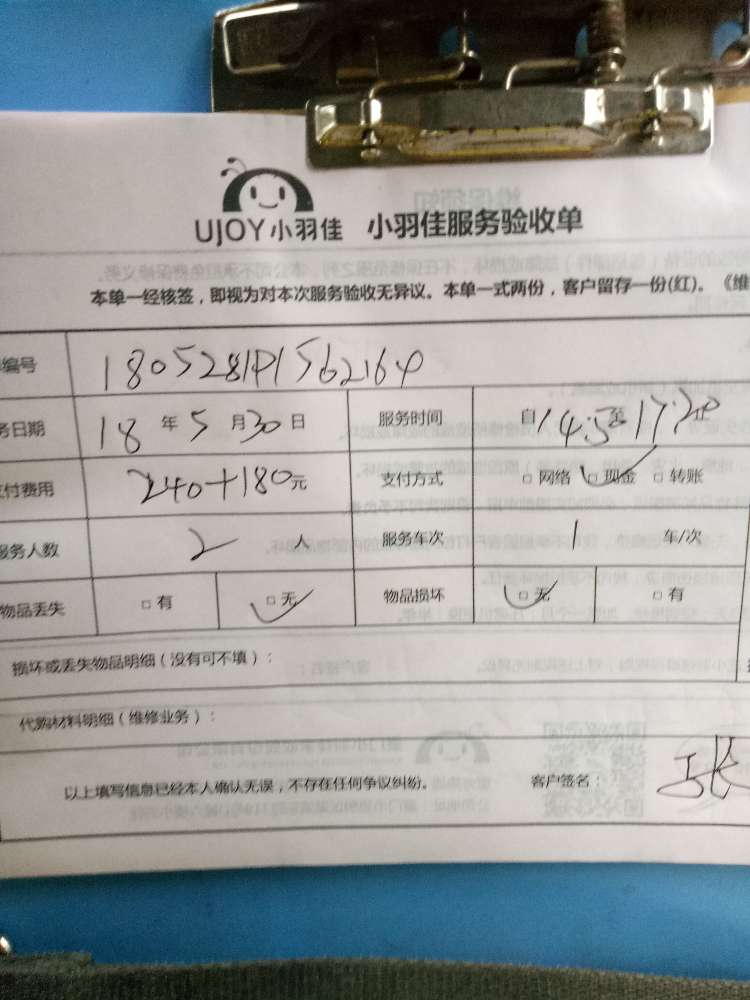 UJOY小羽佳 小羽佳服务验收单
本单一经核签，即视为对本次服务验收无异议。本单一式两份，客户留存一份(红)。《维
编号 180528191562164
务日期 18 年 5 月 30 日 服务时间 自 14:5 至 17:20
支付费用 240+180元 支付方式 □ 网络 □ 现金 □ 转账
服务人数 2 人 服务车次 1 车/次
物品丢失 □ 有 □ 无 物品损坏 □ 无 □ 有
损坏或丢失物品明细（没有可不填）：
代购材料明细（维修业务）：
以上填写信息已经本人确认无误，不存在任何争议纠纷。 客户签名： 张